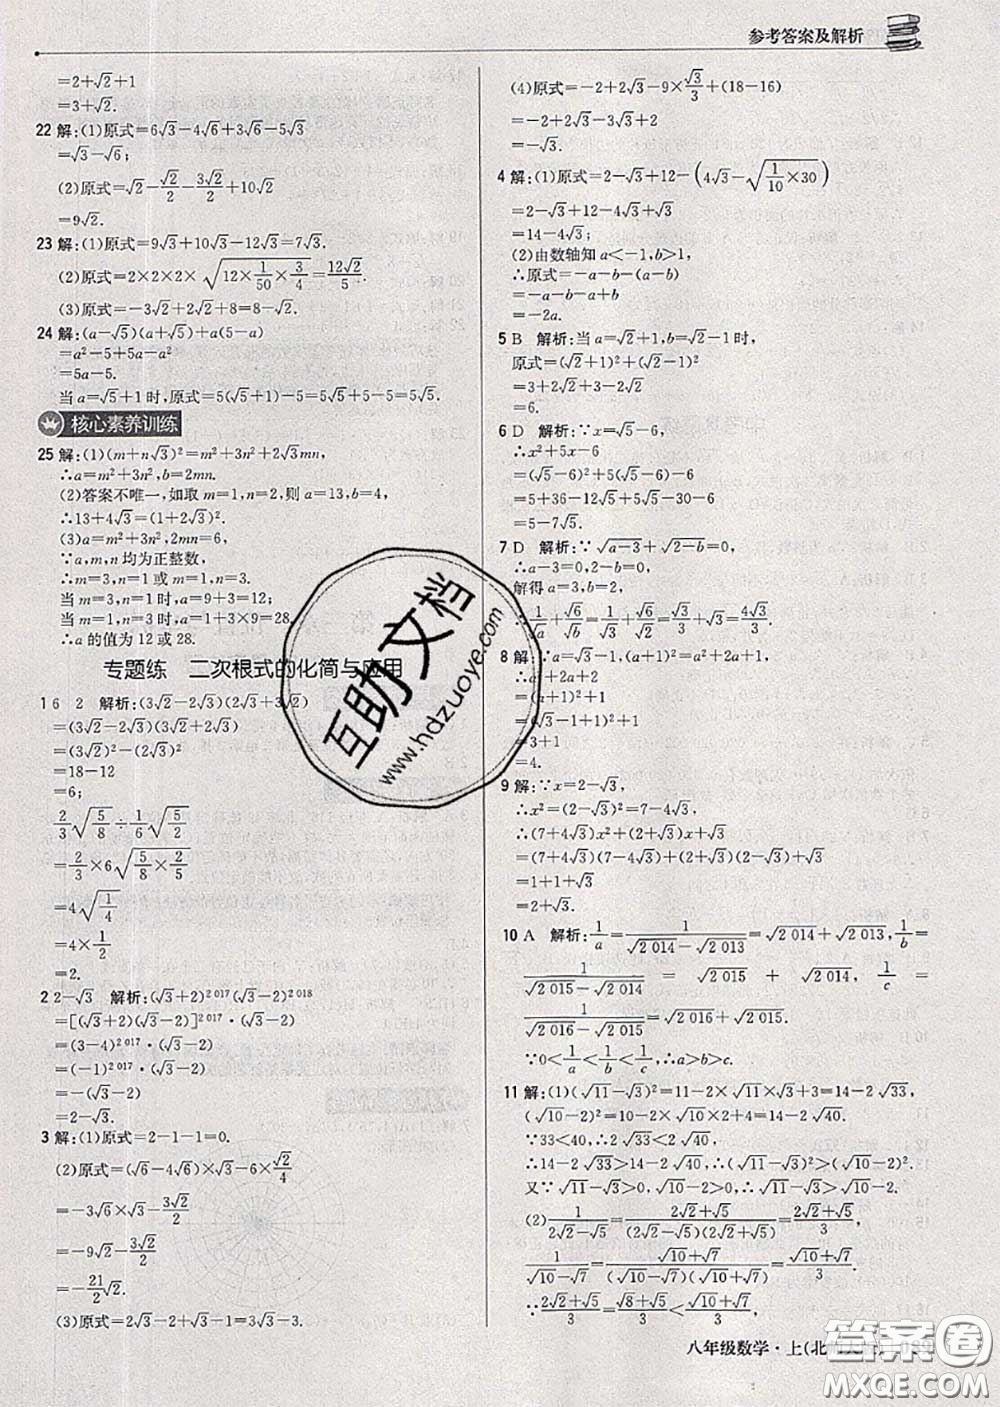 参考答案及解析
=2+√2+1
=3+√2.
22 解:(1)原式=6√3-4√6+3√6-5√3
=√3-√6;
(2)原式=√2-√2/2-3√2/2+10√2
=9√2.
23 解:(1)原式=9√3+10√3-12√3=7√3.
(2)原式=2×2×2×√(12×1/50×3/4)=12√2/5.
(3)原式=-3√2+2√2+8=8-√2.
24 解:(a-√5)(a+√5)+a(5-a)
=a²-5+5a-a²
=5a-5.
当a=√5+1时,原式=5(√5+1)-5=5√5+5-5=5√5.
核心素养训练
25 解:(1)(m+n√3)²=m²+3n²+2√3mn,
∴a=m²+3n²,b=2mn.
(2)答案不唯一,如取m=1,n=2,则a=13,b=4,
∴13+4√3=(1+2√3)².
(3)a=m²+3n²,2mn=6,
∵a,m,n均为正整数,
∴m=3,n=1或m=1,n=3.
当m=3,n=1时,a=9+3=12;
当m=1,n=3时,a=1+3×9=28.
∴a的值为12或28.
专题练 二次根式的化简与应用
1 6 2 解析:(3√2-2√3)(2√3+3√2)
=(3√2-2√3)(3√2+2√3)
=(3√2)²-(2√3)²
=18-12
=6;
2/3√(5/8)÷1/6√(5/2)
=2/3×6√(5/8×2/5)
=4√(1/4)
=4×1/2
=2.
2 2-√3 解析:(√3+2)²⁰¹⁷(√3-2)²⁰¹⁸
=[(√3+2)(√3-2)]²⁰¹⁷·(√3-2)
=(3-4)²⁰¹⁷·(√3-2)
=(-1)²⁰¹⁷·(√3-2)
=-(√3-2)
=2-√3.
3 解:(1)原式=2-1-1=0.
(2)原式=(√6-4√6)×√3-6×√2/4
=-3√6×√3-3√2/2
=-9√2-3√2/2
=-21/2√2.
(3)原式=2√3-2+√3-1=3√3-3.
(4)原式=-2+2√3-9×√3/3+(18-16)
=-2+2√3-3√3+2
=-√3.
4 解:(1)原式=2-√3+12-(4√3-√(1/10×30))
=2-√3+12-4√3+√3
=14-4√3;
(2)由数轴知a<-1,b>1,
∴原式=-a-b-(a-b)
=-a-b-a+b
=-2a.
5 B 解析:当a=√2+1,b=√2-1时,
原式=(√2+1)²+(√2-1)²
=3+2√2+3-2√2
=6.
6 D 解析:∵x=√5-6,
∴x²+5x-6
=(√5-6)²+5(√5-6)-6
=5+36-12√5+5√5-30-6
=5-7√5.
7 D 解析:∵√(a-3)+√(2-b)=0,
∴a-3=0,2-b=0,
解得a=3,b=2,
∴1/√a+√6/√b=1/√3+√6/√2=√3/3+√3=4√3/3.
8 解:∵a=√3-1,(a+1)²=a²+2a+1,
∴a²+2a+2
=(a+1)²+1
=(√3-1+1)²+1
=3+1
=4.
9 解:∵x=2-√3,
∴x²=(2-√3)²=7-4√3,
∴(7+4√3)x²+(2+√3)x+√3
=(7+4√3)(7-4√3)+(2+√3)(2-√3)+√3
=1+1+√3
=2+√3.
10 A 解析:1/a=1/(√2 014-√2 013)=√2 014+√2 013,1/b=
1/(√2 015-√2 014)=√2 015+√2 014,1/c=
1/(√2 016-√2 015)=√2 016+√2 015.
∵0<1/a<1/b<1/c,∴a>b>c.
11 解:(1)(√11-√3)²=11-2×√11×√3+3=14-2√33,
(√10-2)²=10-2×√10×2+4=14-2√40.
∵33<40,∴2√33<2√40,
∴14-2√33>14-2√40,∴(√11-√3)²>(√10-2)².
又∵√11-√3>0,√10-2>0,∴√11-√3>√10-2.
(2)1/(2√2-√5)=(2√2+√5)/((2√2-√5)(2√2+√5))=(2√2+√5)/3,
1/(√10-√7)=(√10+√7)/((√10-√7)(√10+√7))=(√10+√7)/3.
∵(2√2+√5)/3=(√8+√5)/3<(√10+√7)/3,
八年级数学·上(北
互助文档
www.hdzuoye.com
答案卷
MXQE.COM